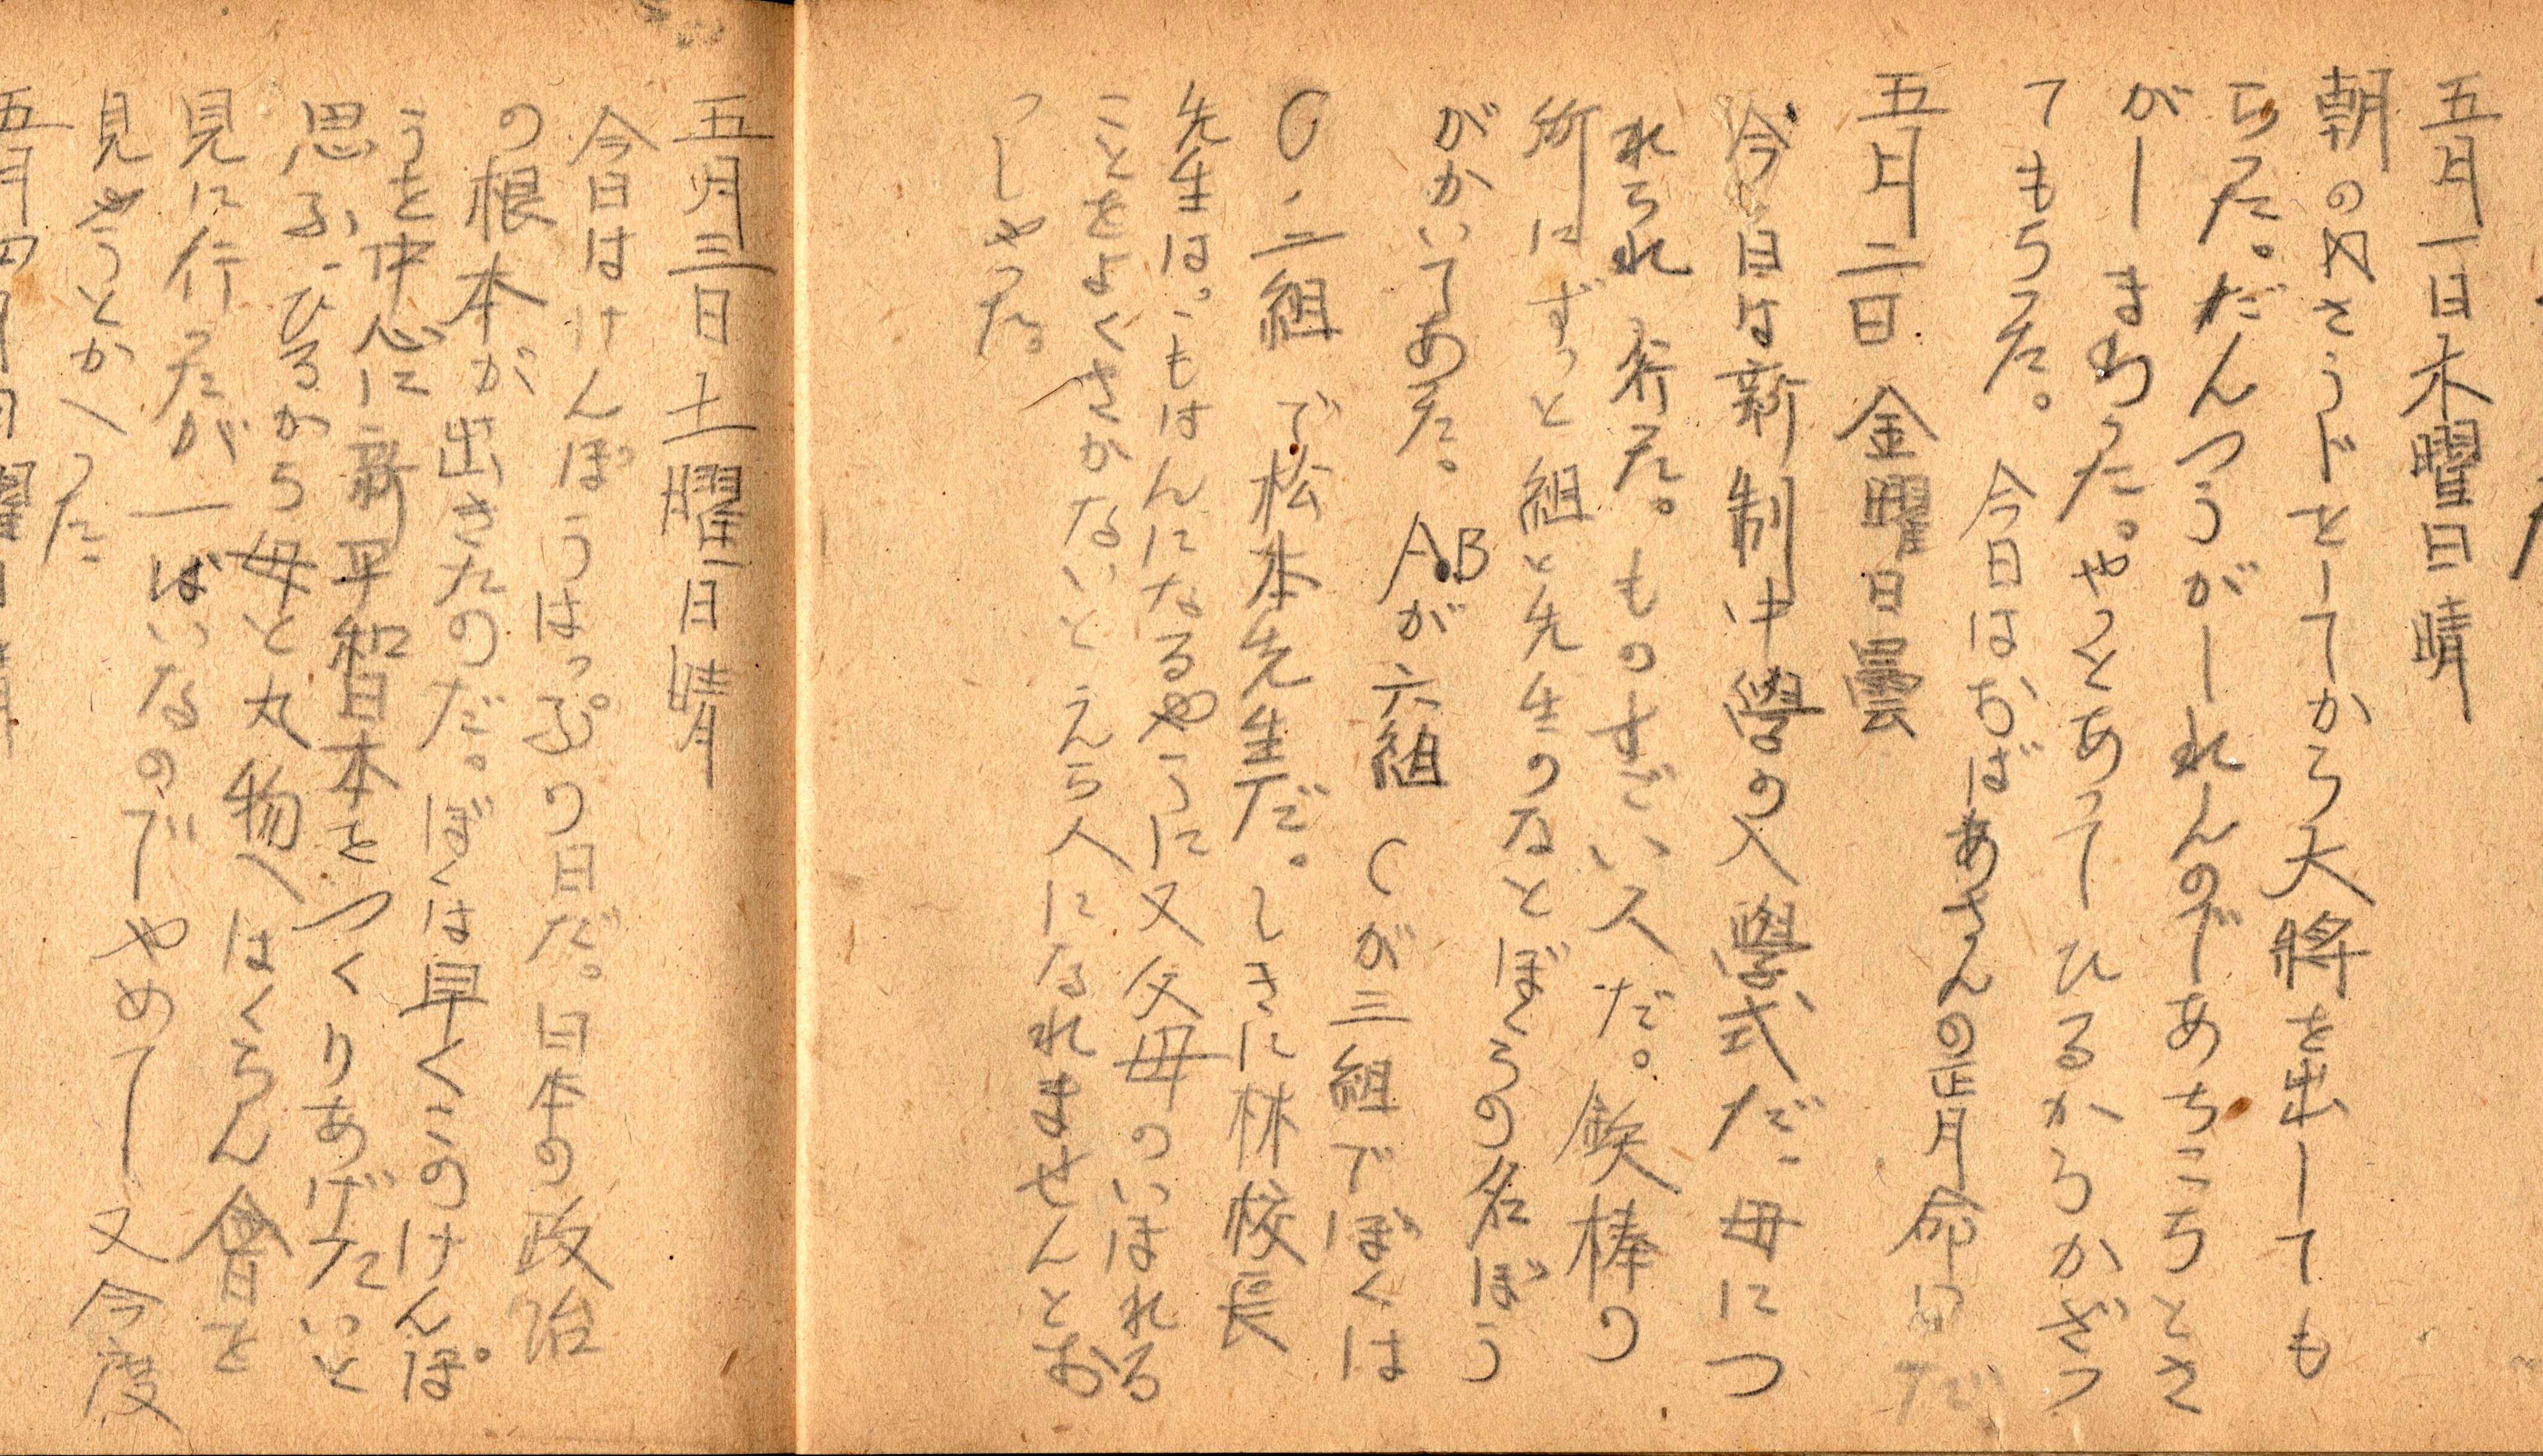 五月一日木曜日晴
朝のぬさうドをしてから大將を出しても
らった。だんつうがしれんのであちこちとさ
がしまわった。やっとあってひるからかざっ
てもらった。今日はおばあさんの正月命日だ。
五月二日金曜日曇
今日は新制中學の入學式だ。母につ
れられ行った。ものすごい人だ。鉄棒の
所にずっと組と先生のなとぼくらの名ぼう
がかいてあった。A.Bが六組Cが三組でぼくは
C、二組で松本先生だ。しきに林校長
先生は。もはんになるやうに又父母のいはれる
ことをよくきかないとえら人になれませんとお
っしゃった。
五月三日土曜日晴
今日はけんぽうはっぷの日だ。日本の政治
の根本が出きたのだ。ぼくは早くこのけんぽ
うを中心に新平和日本をつくりあげたいと
思ふ。ひるから母と丸物へはくらん會を
見に行ったが一ぱいなのでやめて又今度
見やうとかへった
五月四日日曜日晴